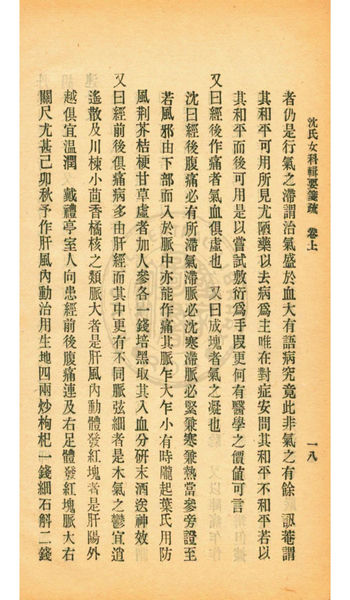 沈氏女科輯要箋疏 卷上
一八
者仍是行氣之滯謂治氣盛於血大有語病究竟此非氣之有餘 讱菴謂
其和平可用所見尤陋藥以去病爲主唯在對症安問其和平不和平若以
其和平而後可用是以嘗試敷衍爲手段更何有醫學之價値可言
又曰經後作痛者氣血俱虛也 又曰成塊者氣之凝也
沈曰經後腹痛必有所滯氣滯脈必沈寒滯脈必緊兼寒兼熱當參旁證至
若風邪由下部而入於脈中亦能作痛其脈乍大乍小有時隴起葉氏用防
風荆芥桔梗甘草虛者加人參各一錢焙黑取其入血分硏末酒送神效
又曰經前後俱痛病多由肝經而其中更有不同脈弦細者是木氣之鬱宜逍
遙散及川楝小茴香橘核之類脈大者是肝風內動體發紅塊者是肝陽外
越俱宜溫潤 戴禮亭室人向患經前後腹痛連及右足體發紅塊脈大右
關尺尤甚己卯秋予作肝風內動治用生地四兩炒枸杞一錢細石斛二錢